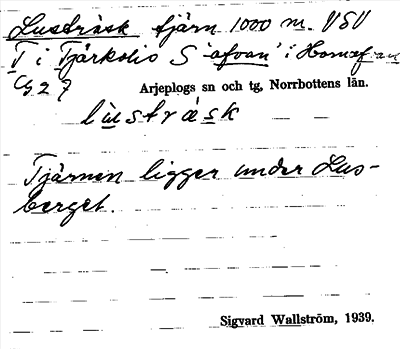 Lusträsk tjärn 1000 m. VSV
T i Tjärkolis S-afvan i Hornaf
G 2 7 Arjeplogs sn och tg, Norrbottens län.
lùstræsk
Tjärnen ligger under Lus-
berget.
Sigvard Wallström, 1939.